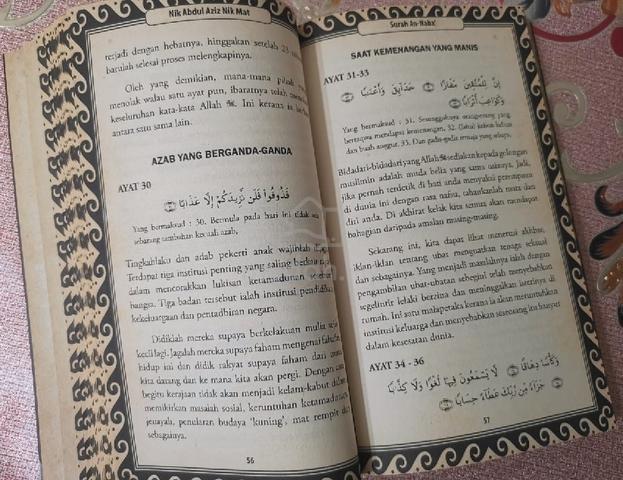 Nik Abdul Aziz Nik Mat
terjadi dengan hebatnya, hinggakan setelah 23
barulah selesai proses melengkapinya.
Oleh yang demikian, mana-mana pihak
menolak walau satu ayat pun, ibaratnya telah
keseluruhan kata-kata Allah ﷻ. Ini kerana ia
antara satu sama lain.
AZAB YANG BERGANDA-GANDA
AYAT 30
فَذُوقُوا فَلَن نَّزِيدَكُمْ إِلَّا عَذَابًا
Yang bermaksud : 30. Bermula pada hari ini tidak
sebarang tambahan kecuali azab,
Tingkahlaku dan adab pekerti anak wajiblah
Terdapat tiga institusi penting yang saling
dalam mencorakkan lukisan ketamadunan
bangsa. Tiga badan tersebut ialah institusi pendidikan
kekeluargaan dan pentadbiran negara.
Didiklah mereka supaya berkelakuan mulia
kecil lagi. Jagalah mereka supaya faham mengenai
hidup ini dan didik rakyat supaya faham dari
kita datang dan ke mana kita akan pergi. Dengan
begitu kerajaan tidak akan menjadi kelam-kabut
memikirkan masaiah sosial, keruntuhan ketamadunan
jenayah, penularan budaya 'kuning', mat rempit
sebagainya.
56
Surah An-Naba'
SAAT KEMENANGAN YANG MANIS
AYAT 31-33
إِنَّ لِلْمُتَّقِينَ مَفَازًا حَدَائِقَ وَأَعْنَابًا
وَكَوَاعِبَ أَتْرَابًا
Yang bermaksud : 31. Sesungguhnya orang-orang yang
bertaqwa mendapat kemenangan, 32. (Iaitu) kebun-kebun
dan buah anggur. 33. Dan gadis-gadis remaja yang sebaya,
Bidadari-bidadari yang Allah ﷻ sediakan kepada golongan
muslimin adalah muda belia yang sama usianya. Jadi,
jika pernah terdetik di hati anda menyukai perempuan
di dunia ini dengan rasa nafsu, tahankanlah mata dan
diri anda. Di akhirat kelak kita semua akan mendapat
bahagian daripada amalan masing-masing.
Sekarang ini, kita dapat lihat menerusi akhbar,
iklan-iklan tentang ubat menguatkan tenaga seksual
dan sebagainya. Yang menjadi masalahnya ialah dengan
pengambilan ubat-ubatan sebegini telah menyebabkan
segelintir lelaki berzina dan meninggalkan isterinya di
rumah. Ini satu malapetaka kerana ia akan meruntuhkan
institusi keluarga dan menyebabkan seseorang itu hanyut
dalam kesesatan dunia.
AYAT 34 - 36
وَكَأْسًا دِهَاقًا لَّا يَسْمَعُونَ فِيهَا لَغْوًا وَلَا كِذَّابًا
جَزَاءً مِّن رَّبِّكَ عَطَاءً حِسَابًا
57